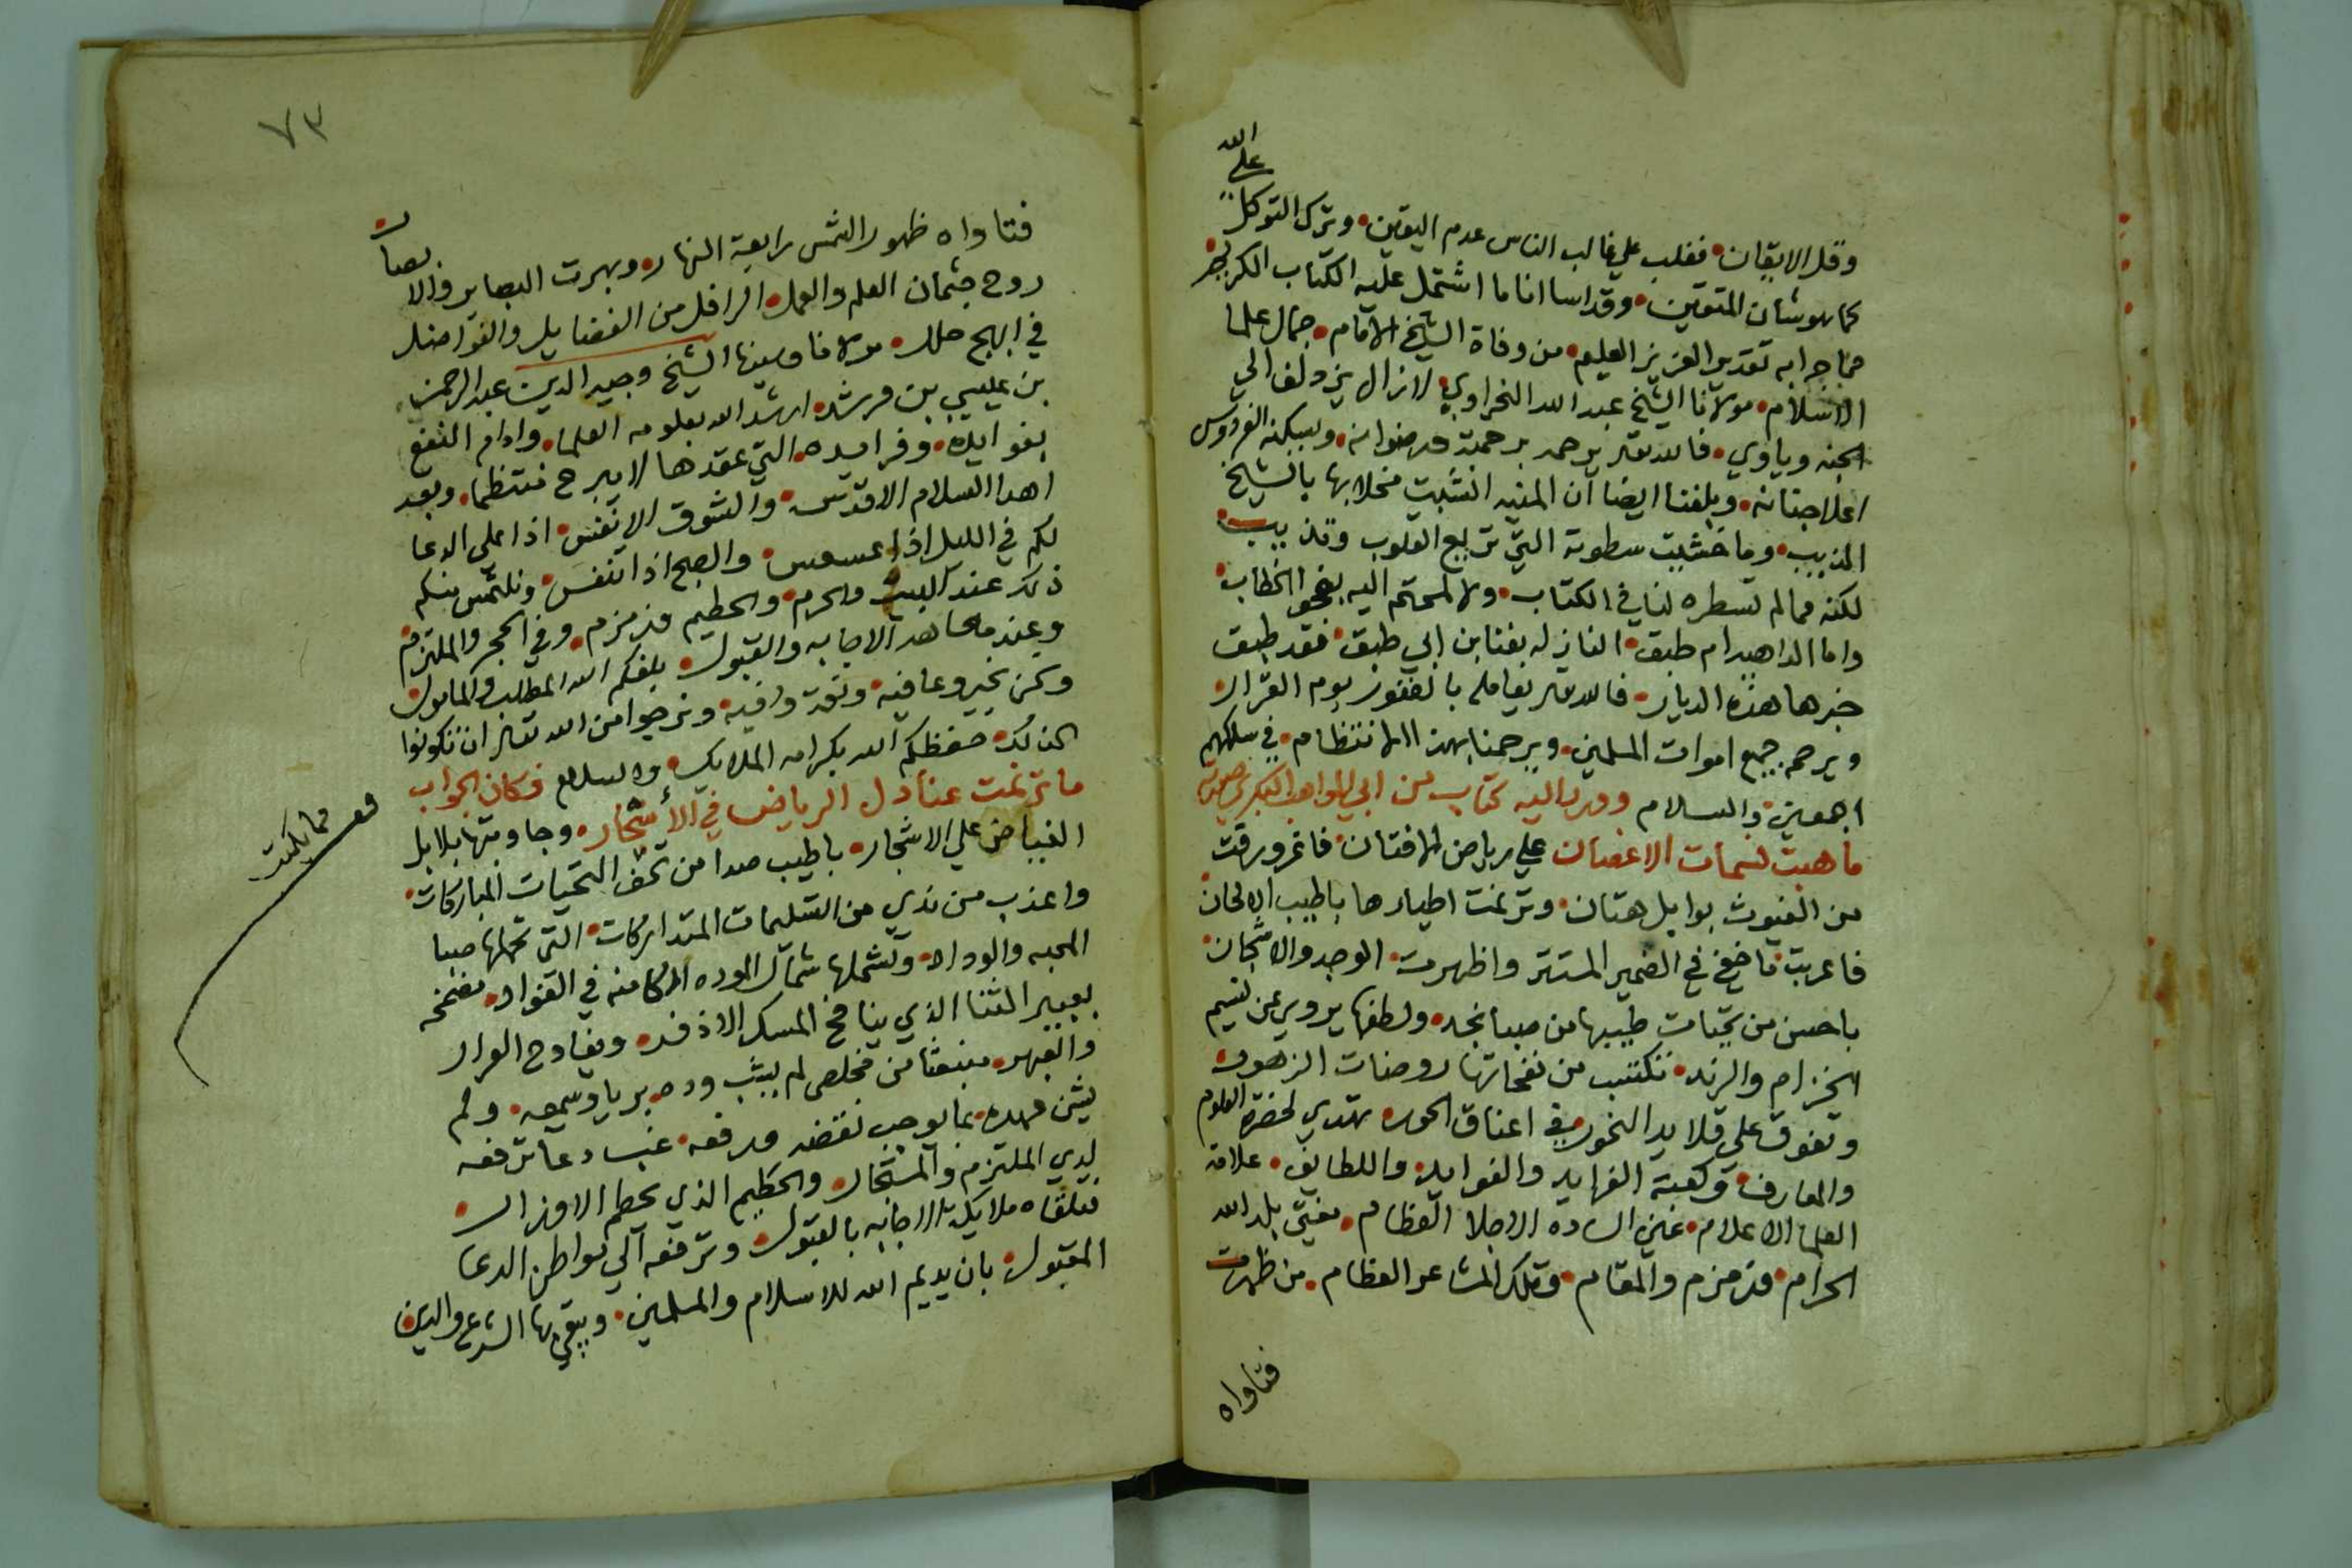 وقل الايقان فغلب علي غالب الناس عدم اليقين وترك التوكل
علي الله
كما هو شان المتقين وقد اسا انا ما اشتمل عليه الكتاب الكريم
مما جرا به تقدير العزيز العليم من وفاة الشيخ الامام جمال علما
الاسلام مولانا الشيخ عبد الله النحراوي لا زال يزدلف الي
الجنه وياوي فالله تعالي يرحمه برحمته ورضوانه ويسكنه الفردوس
اعلا جنانه وبلغنا ايضا ان المنيه انشبت مخلابها بالشيخ
المذيب وما خشيت سطوته التي تربع القلوب وتذيب
لكنه مما لم تسطره لنا في الكتاب ولا لمحتم اليه بفحو الخطاب
واما الداهيه ام طبق النازله بفنا بن ابي طبق فقد طبق
خبرها هذه الديار فالله تعالي يعامله بالعفو يوم القرار
ويرحم جميع اموات المسلمين ويرحمنا بهذا الانتظام في سلكهم
اجمعين والسلام وورد اليه كتاب من ابي المواهب البكري صورته
ما هبت نسمات الاغصان علي رياض الافنان فاغرورقت
من الغيوث بوابل هتان وترنمت اطيارها باطيب الالحان
فاعربت ما خفي في الضمير المستتر واظهرت الوجد والاشجان
باحسن من تحيات طيبها من صبا نجد ولطفها يروي عن نسيم
الخزام والرند تكتسب من نفحاتها روضات الزهور
وتفوق علي قلايد النحور في اعناق الحور تهتدي لحضرة العلوم
والمعارف وكعبة الفرايد والفوايد واللطايف علامة
العلما الاعلام عين الساده الاجلا العظام مفتي بلد الله
الحرام وزمزم والمقام وتلك المشاعر العظام من ظهرت
فتاواه
٧٣
فتاواه ظهور الشمس رابعة النهار وبهرت البصاير والابصار
روح جثمان العلم والعمل الرافل من الفضايل والفواضل
في ابهج حلل مولانا وسيدنا الشيخ وجيه الدين عبد الرحمن
بن عيسي بن مرشد ارشد الله بعلومه العلما وادام النفع
بفوايده وفرايده التي عقدها لا يبرح منتظما وبعد
اهدا السلام الاقدس والشوق الانفس اذا علي الدعا
لكم في الليل اذا عسعس والصبح اذا تنفس ونلتمس منكم
ذلك عند البيت والحرم والحطيم وزمزم وفي الحجر والملتزم
وعند معاهد الاجابه والقبول بلغكم الله المطلب والمامول
ونحن بخير وعافيه ونعم وافيه ونرجوا من الله تعالي ان تكونوا
كذلك حفظكم الله بكرامه الملايك والسلام فكان الجواب
ما ترنمت عنادل الرياض في الأشجار وجاوبتها بلابل
الغياض علي الاشجار باطيب صدا من تحف التحيات المباركات
واعذب من ندي من التسليمات المتداركات التي تحملها صبا
المحبه والوداد وتشملها شمال الوده الكامنه في الفواد مضمخه
بعبير الثنا الذي ينافح المسك الاذفر ويفاوح العرار
والعبهر منبعثا من مخلص لم يشب وده بريا وسمعه ولم
يشن عهده بما يوجب نقضه ورفعه غب دعا ترفعه
لدي الملتزم والمستجار والحطيم الذي يحطم الاوزار
فتلقاه ملايكة الاجابه بالقبول وترفعه الي مواطن الدعا
المقبول بان يديم الله للاسلام والمسلمين ويبقي بها الشرع والدين